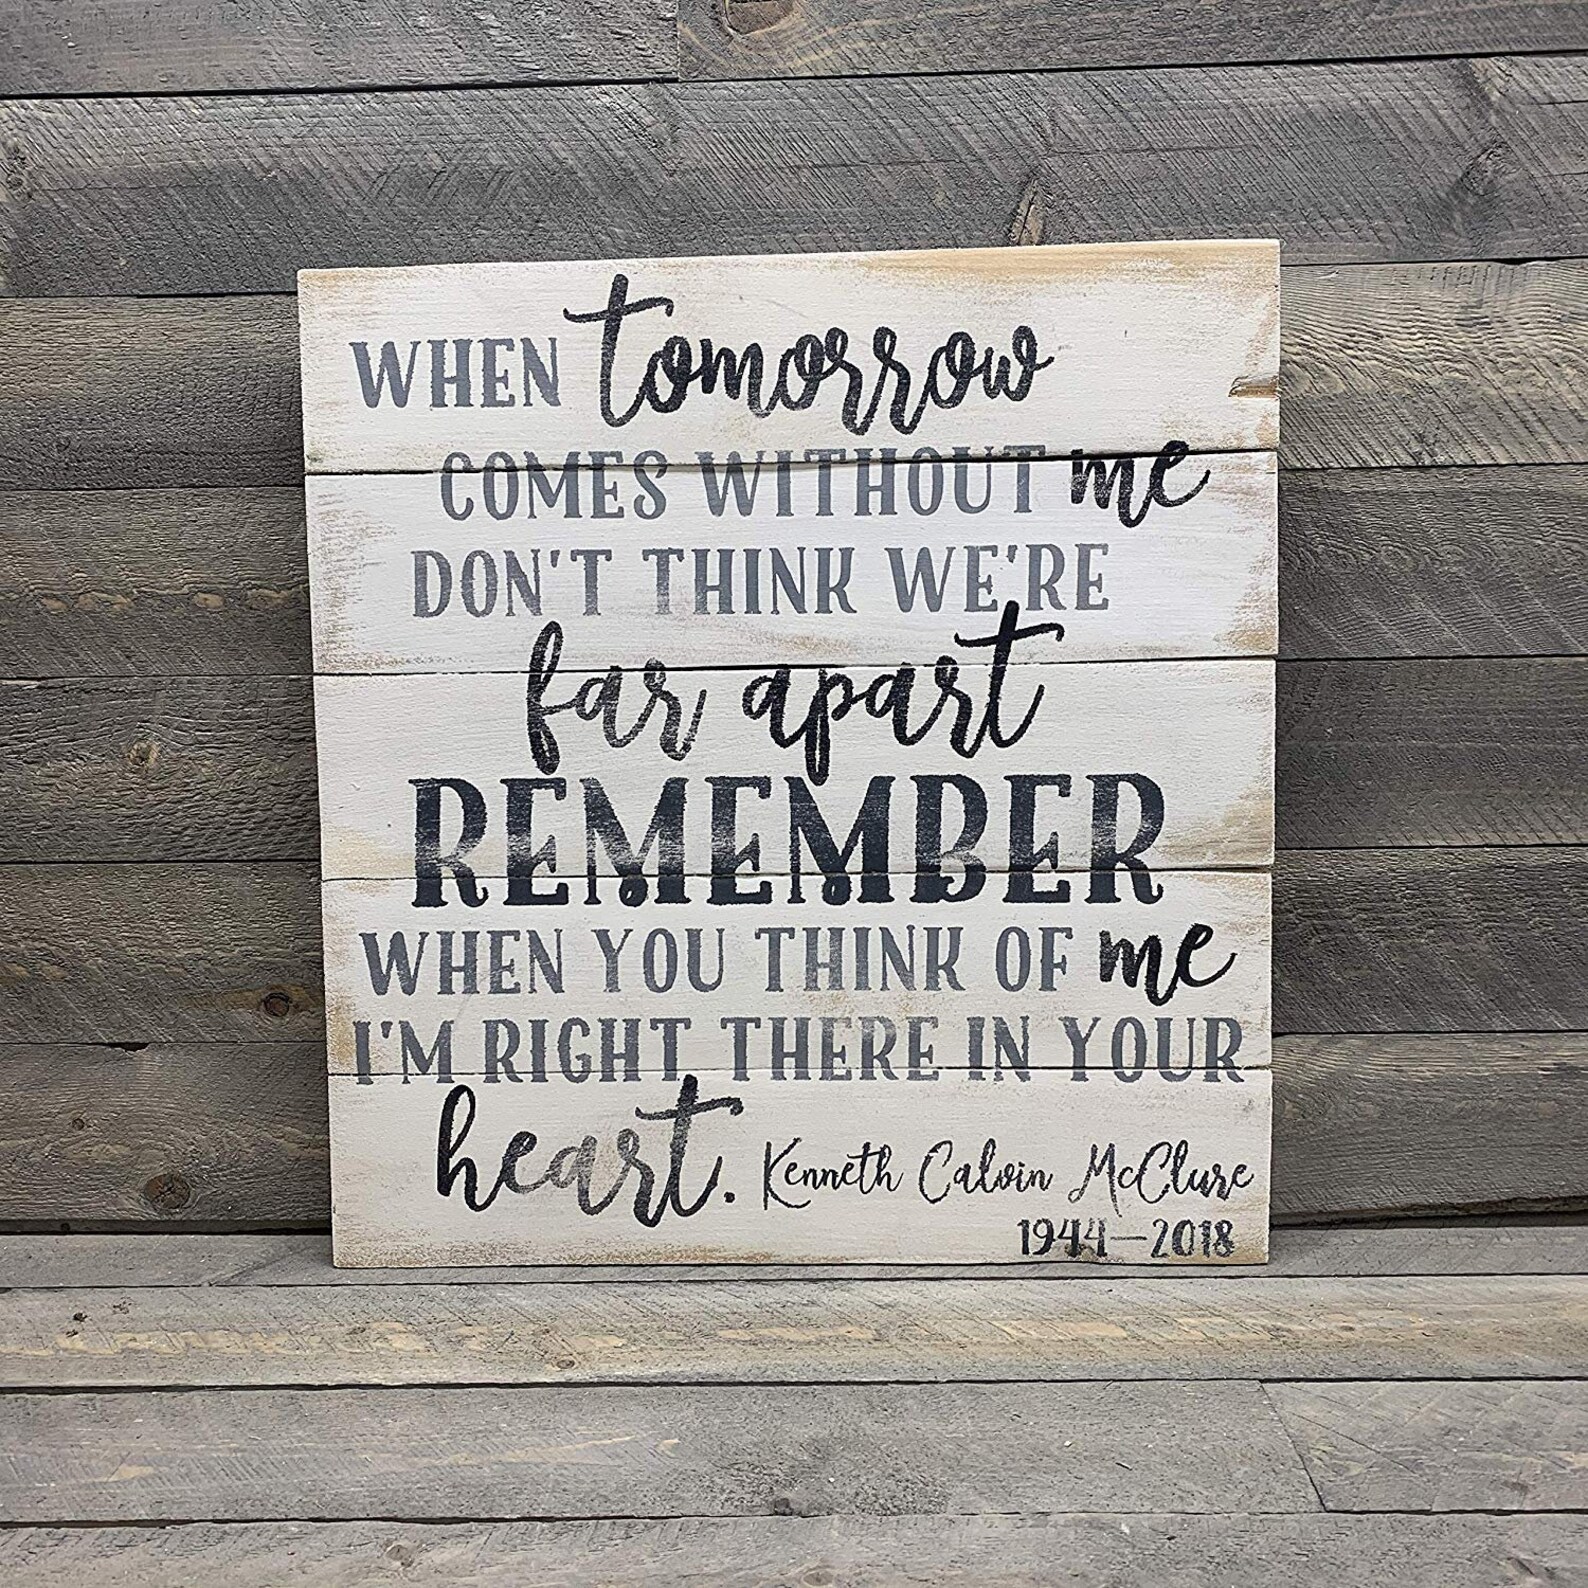 WHEN tomorrow
COMES WITHOUT me
DON'T THINK WE'RE
far apart
REMEMBER
WHEN YOU THINK OF me
I'M RIGHT THERE IN YOUR
heart. Kenneth Calvin McClure
1944—2018